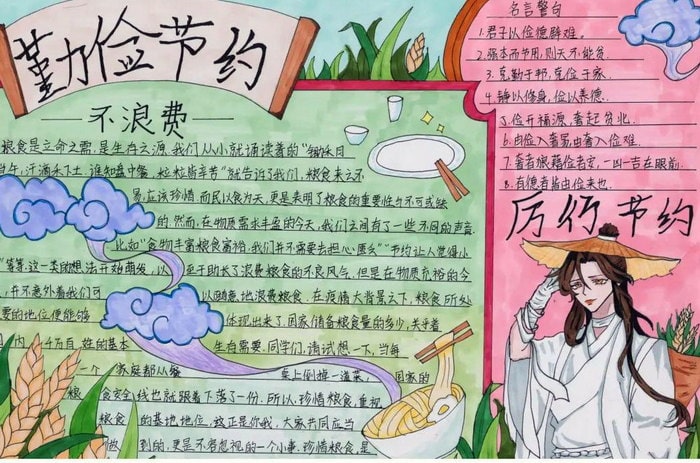 勤俭节约
不浪费
粮食是立命之需,是生存之源,我们从小就诵读着的"锄禾日
当午,汗滴禾下土,谁知盘中餐,粒粒皆辛苦"就告诉了我们,粮食来之不
易,应该珍惜,而民以食为天,更是表明了粮食的重要性与不可或缺
的.然而,在物质需求丰盈的今天,我们之间有了一些不同的声音.
比如"食物丰富粮食富裕,我们并不需要去担心匮乏""节约让人觉得小
等等.这一类的想法开始萌发,以至于助长了浪费粮食的不良风气,但是在物质充裕的今
,并不意外着我们可以随意地浪费粮食,在疫情大背景之下,粮食所处
要的地位便能够体现出来了.国家储备粮食量的多少,关乎着
内,4万百姓的基本生存需要.同学们,请试想一下,当每
一个家庭都从餐桌上倒掉一道菜,国家的
粮食安全线也就跟着下落了一份.所以,珍惜粮食,重视
粮食的基地地位,这正是你我,大家共同应当
做到的,更是不容忽视的一个小事.珍惜粮食,是
名言警句
1.君子以俭德辟难。
2.强本而节用,则天不能贫.
3.克勤于邦,克俭于家.
4.静以修身,俭以养德.
5.俭开福源,奢起贫兆.
6.由俭入奢易,由奢入俭难.
7.奢者狼藉俭者安,一凶一吉在眼前.
8.有德者皆由俭来也.
厉行节约